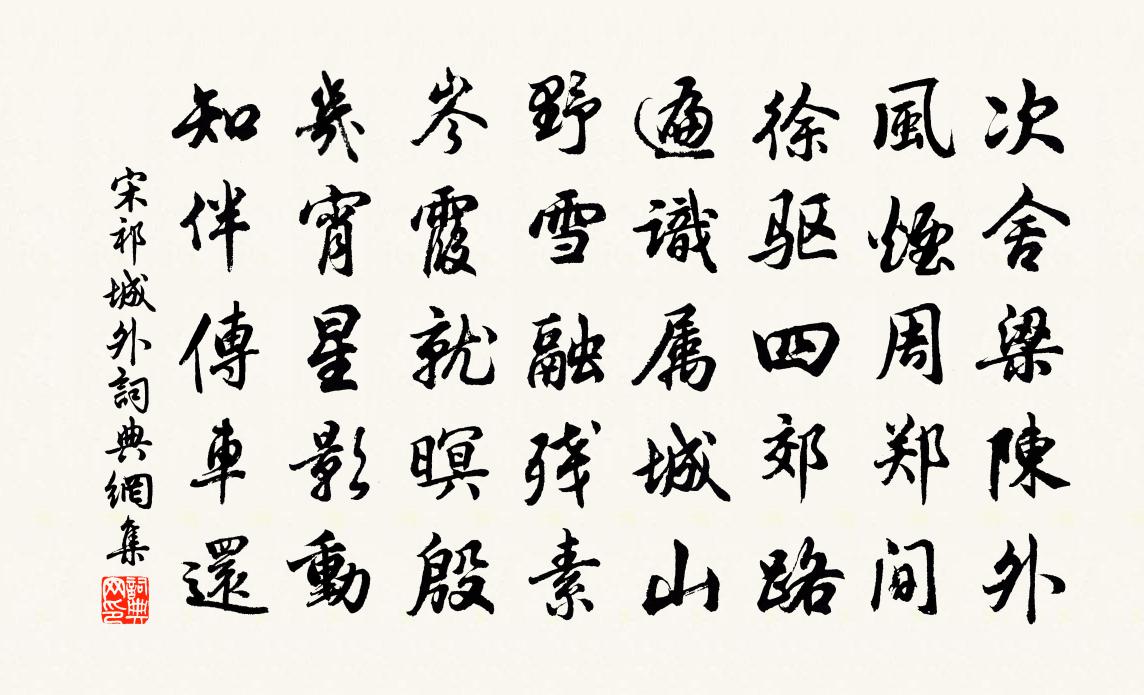 次舍梁陳外
風煙周郑间
徐驱四郊路
遍識属城山
野雪融残素
岑霞就暝殷
幾宵星影動
知伴傳車還
宋祁城外詞典網集
詞典网印